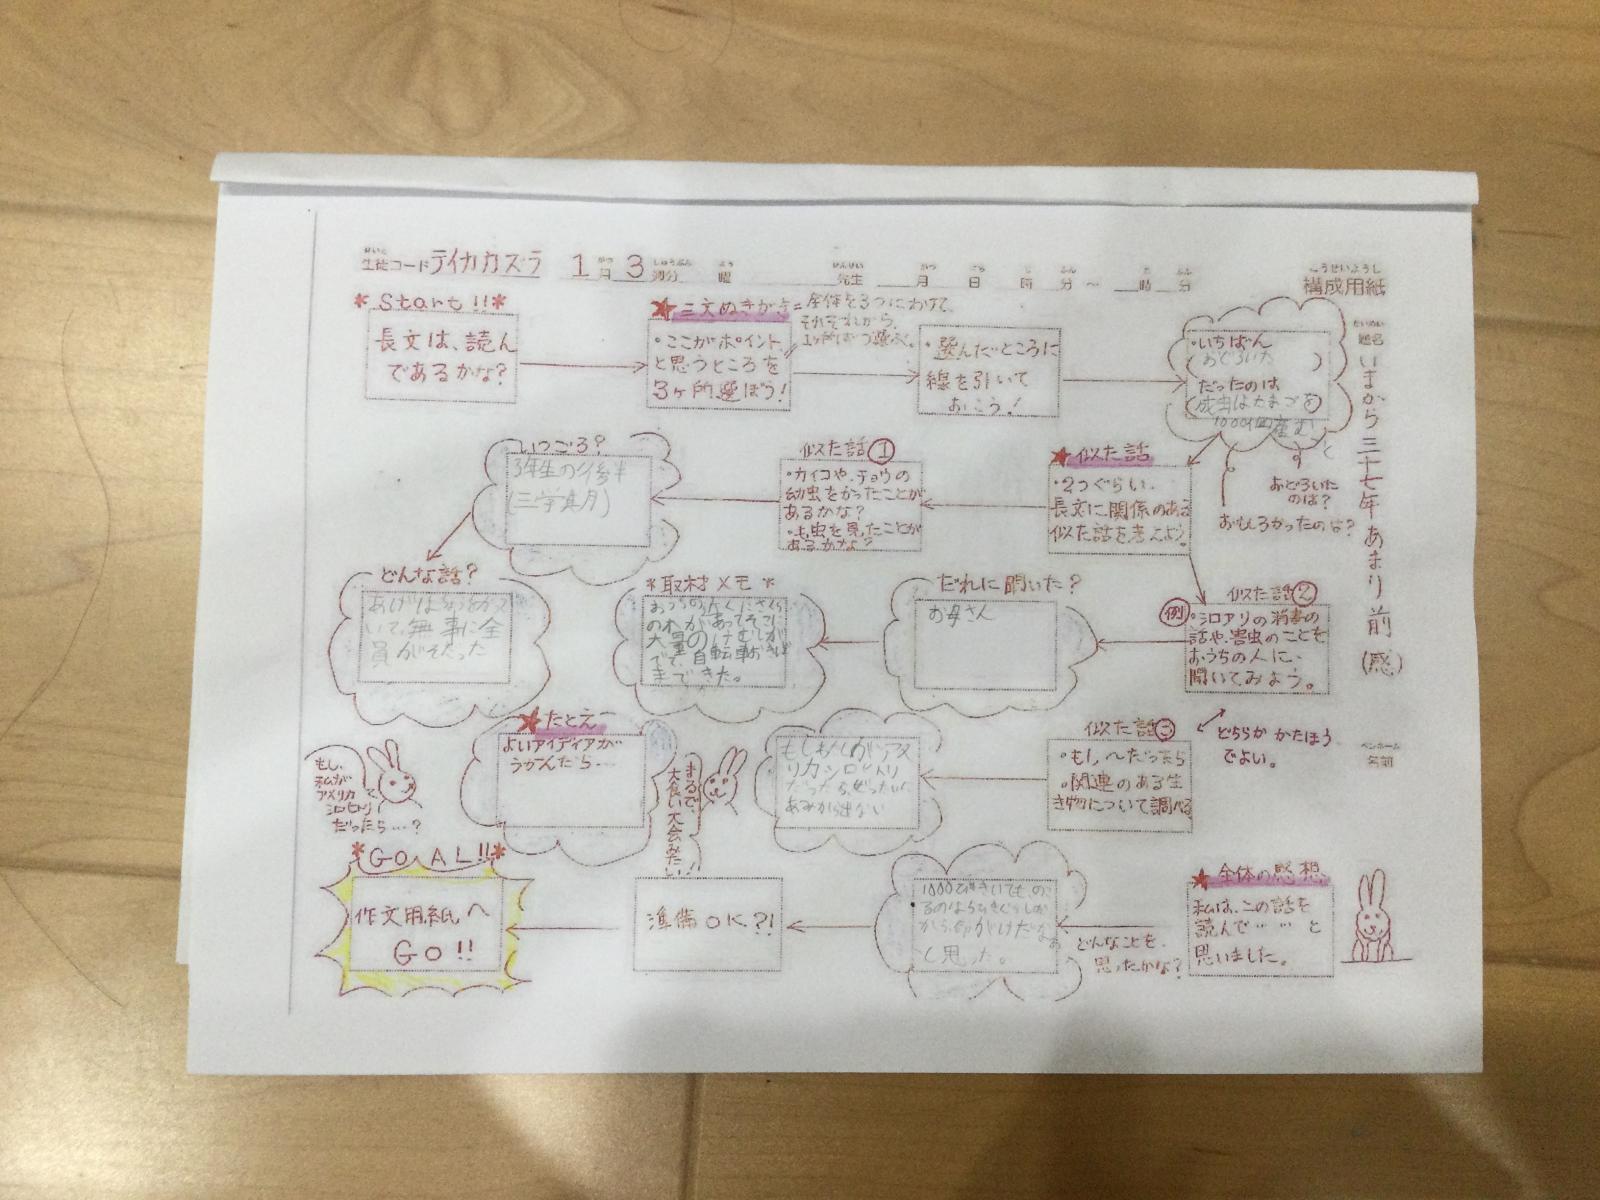 生徒コード テイカカズラ 1月3週分 曜 先生 月 日 時 分 ～ 時 分
構成用紙
題名 いまから三十七年あまり前(感)
*Start!!*
長文は、読ん
であるかな?
★三文ぬきがき=全体を3つにわけて、
それぞれから、
1ヶ所ずつ選ぶ。
・ここがポイント、
と思うところを
3ヶ所選ぼう!
・選んだところに
線を引いて
おこう!
・いちばん
(おどろいた)
だったのは
成虫はたまごを
1000個産む
と
おどろいた
のは?
おもしろかったのは?
★似た話
・2つぐらい、
長文に関係のある
似た話を考えよう。
似た話①
・カイコや、チョウの
幼虫をかったことが
あるかな?
・毛虫を見たことが
あるかな?
いつごろ?
3年生の後半
(三学期)
どんな話?
あげはちょうをかって
いて、無事に全
員がそだった
似た話②
例
・シロアリの消毒の
話や、害虫のことを
おうちの人に、
聞いてみよう。
どちらか かたほう
でよい。
だれに聞いた?
お母さん
*取材メモ*
おうちの近くにさくら
の木があってそこに
大量のけむしが
でて、自転車おきば
まできた。
似た話③
・もし、〜だったら
・関連のある生
き物について調べる
もしわたしがアメ
リカシロヒトリ
だったらぜったいに
あみから出ない
★たとえ
よいアイディアが
うかんだら…
まるで、
大食い大会みたい!
もし、
私が
アメリカ
シロヒトリ
だったら…?
ペンネーム
名前
★全体の感想
私は、この話を
読んで……と
思いました。
どんなことを、
思ったかな?
と思った。
準備OK?!
*GOAL!!*
作文用紙へ
GO!!